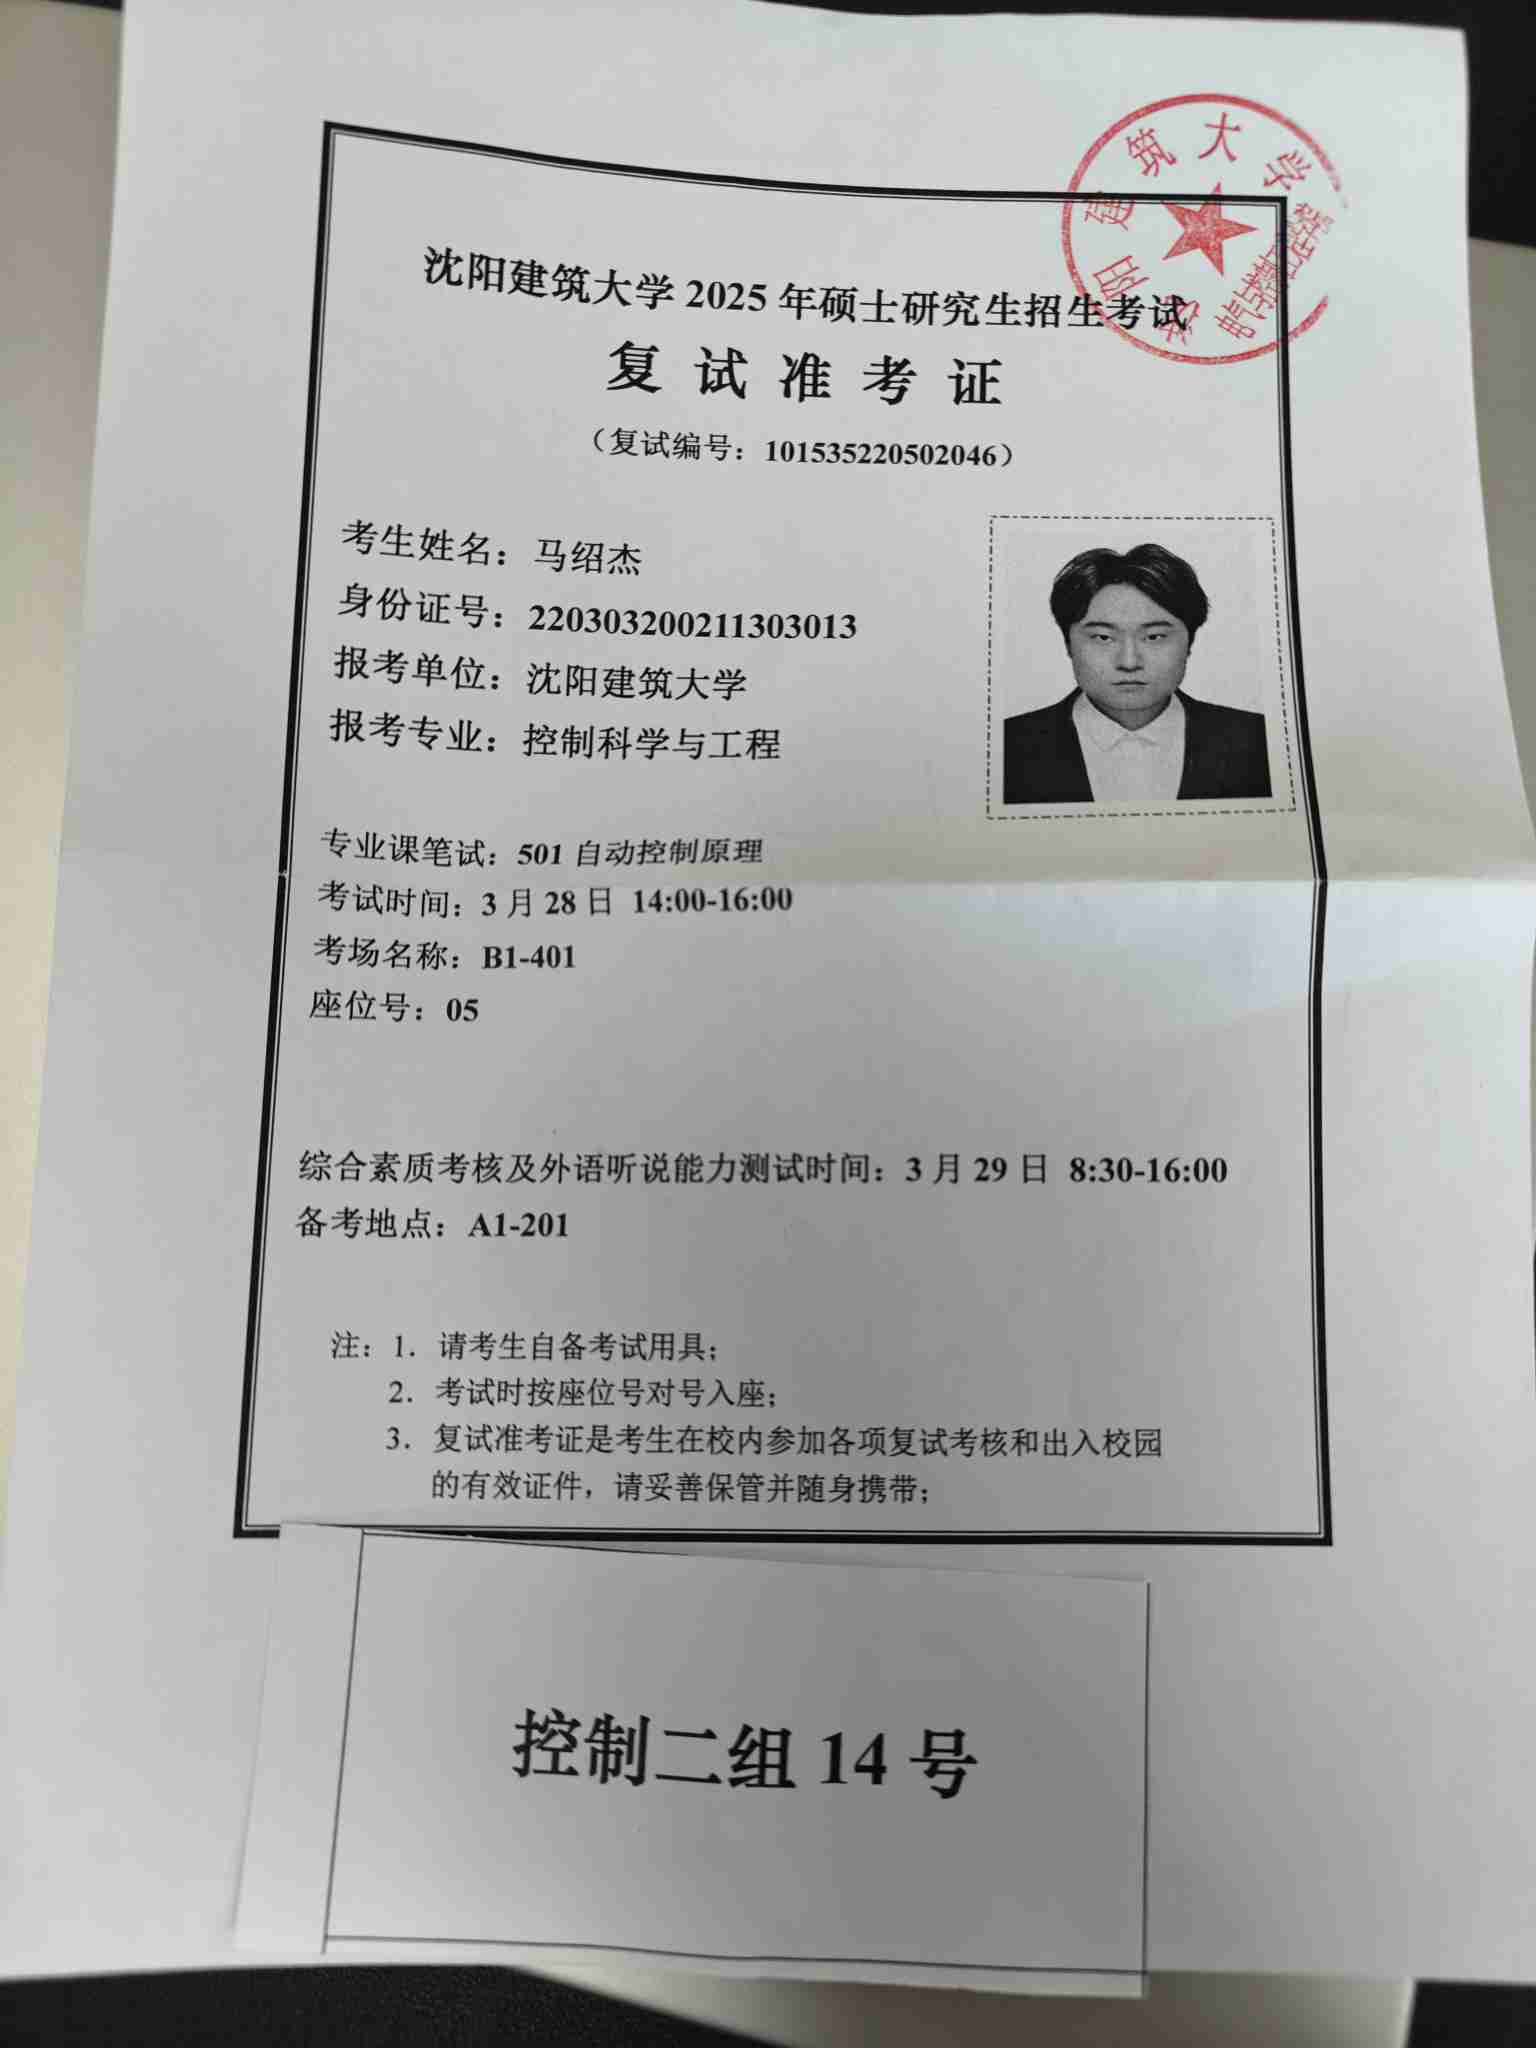 沈阳建筑大学
沈阳建筑大学 2025 年硕士研究生招生考试
复试准考证
（复试编号：101535220502046）
考生姓名：马绍杰
身份证号：220303200211303013
报考单位：沈阳建筑大学
报考专业：控制科学与工程
专业课笔试：501 自动控制原理
考试时间：3 月 28 日 14:00-16:00
考场名称：B1-401
座位号：05
综合素质考核及外语听说能力测试时间：3 月 29 日 8:30-16:00
备考地点：A1-201
注：1. 请考生自备考试用具；
2. 考试时按座位号对号入座；
3. 复试准考证是考生在校内参加各项复试考核和出入校园
的有效证件，请妥善保管并随身携带；
控制二组 14 号